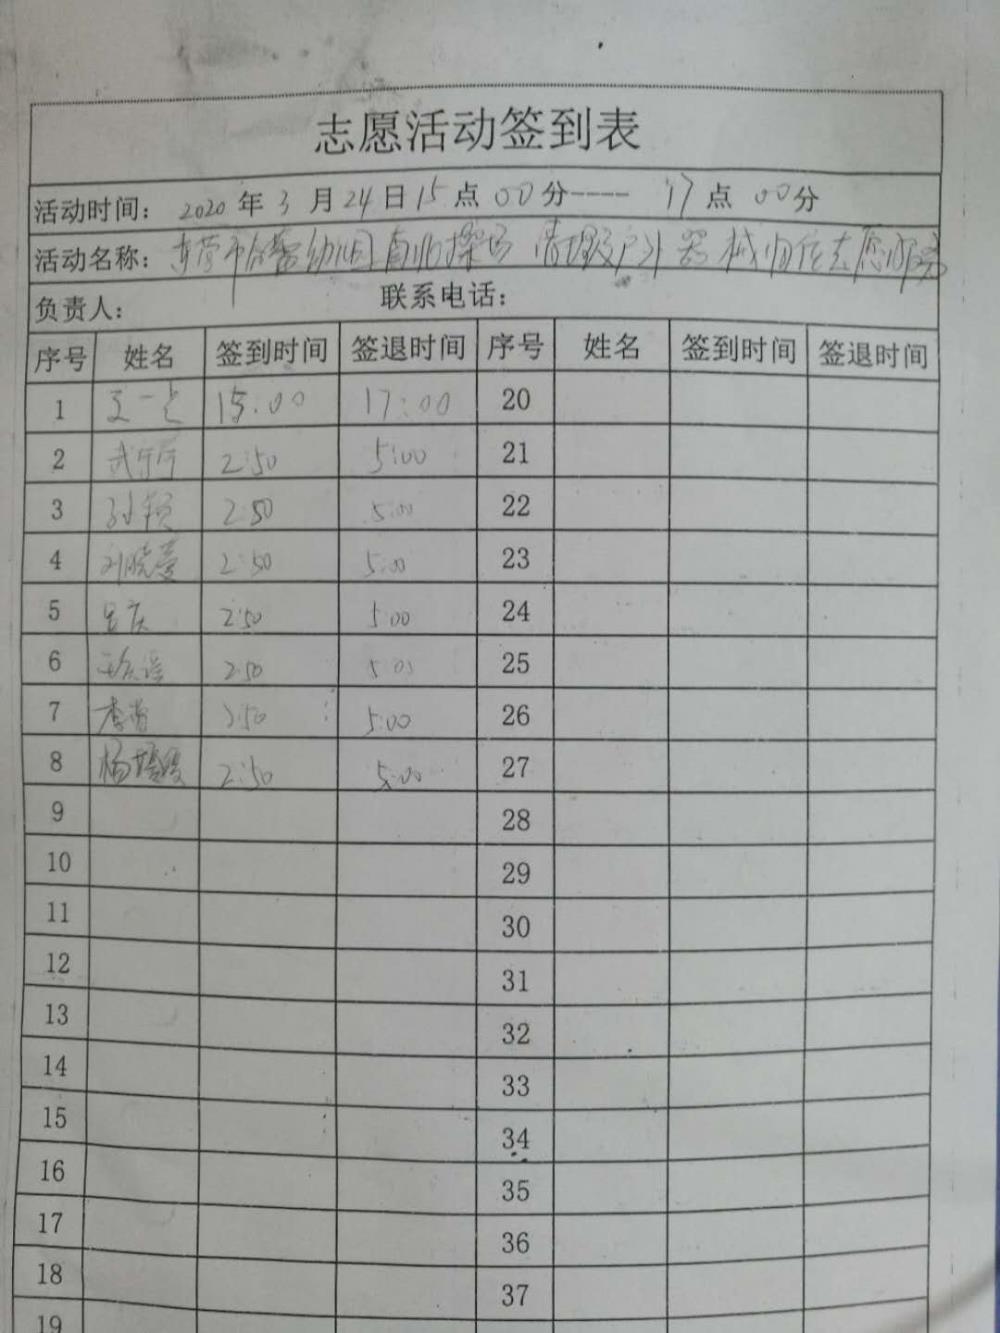 志愿活动签到表
活动时间: 2020年3月24日15点00分---- 17点00分
活动名称: 东营市 幼儿园 操场 清理及户外器械归位志愿服务
负责人: 联系电话:
序号 姓名 签到时间 签退时间 序号 姓名 签到时间 签退时间
1 15:00 17:00 20
2 2:50 5:00 21
3 孙颖 2:50 5:00 22
4 刘晓 2:50 5:00 23
5 2:50 5:00 24
6 2:50 5:00 25
7 李 2:50 5:00 26
8 杨 2:50 5:00 27
9 28
10 29
11 30
12 31
13 32
14 33
15 34
16 35
17 36
18 37
19